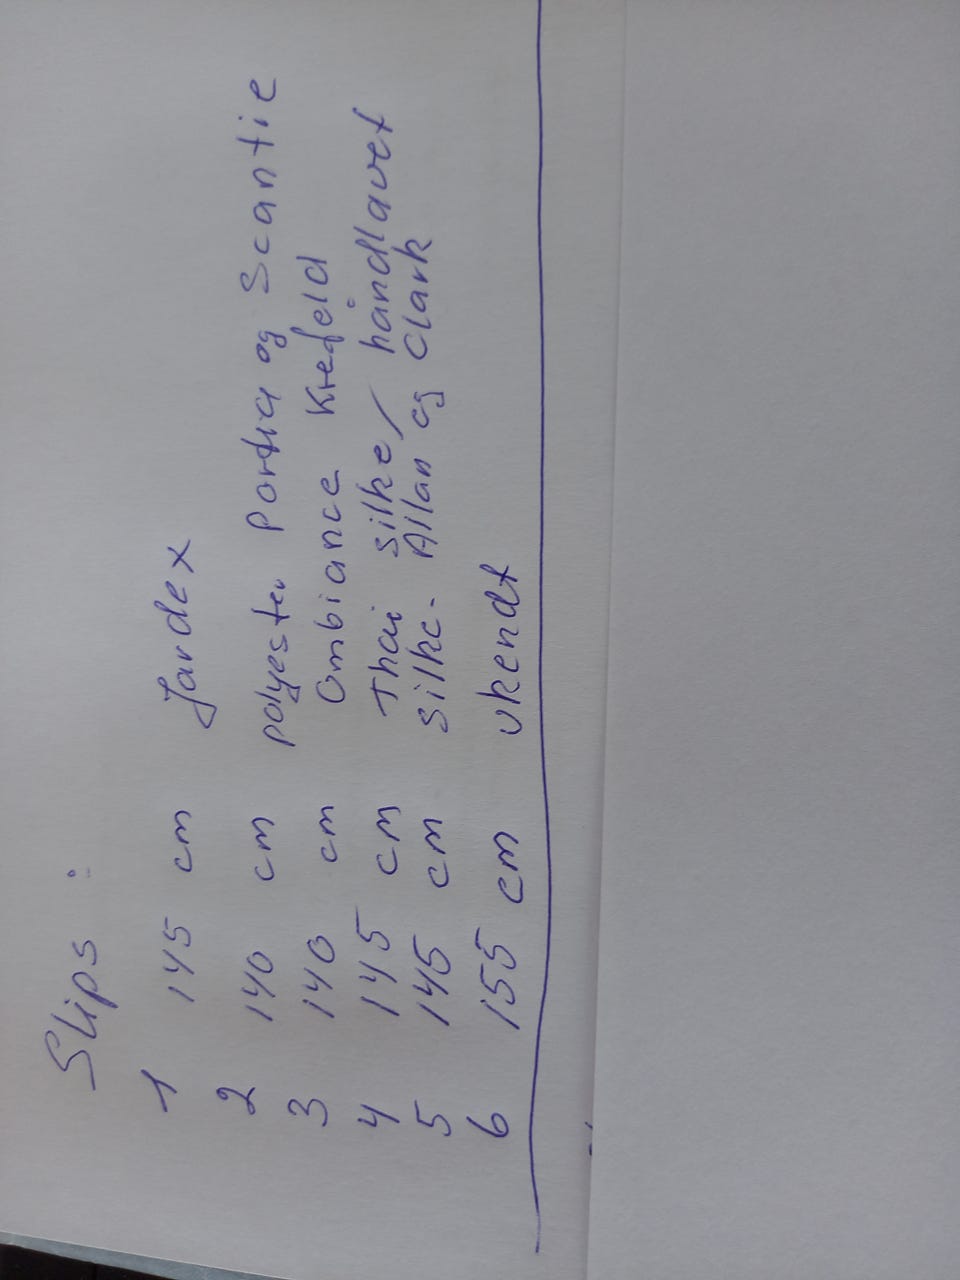 Slips :
1 145 cm Jardex
2 140 cm polyester Portia og Scantie
3 140 cm Ombiance Krefeld
4 145 cm Thai silke / håndlavet
5 145 cm silke - Allan og Clark
6 155 cm ukendt